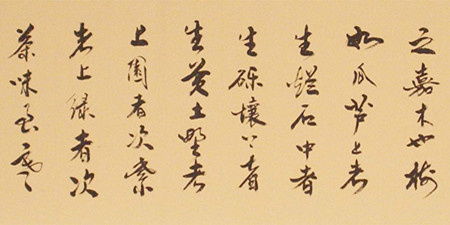 之嘉木也樹
如瓜芦上者
生爛石中者
生砾壤下者
生黄土野者
上園者次紫
者上緑者次
茶味至寒